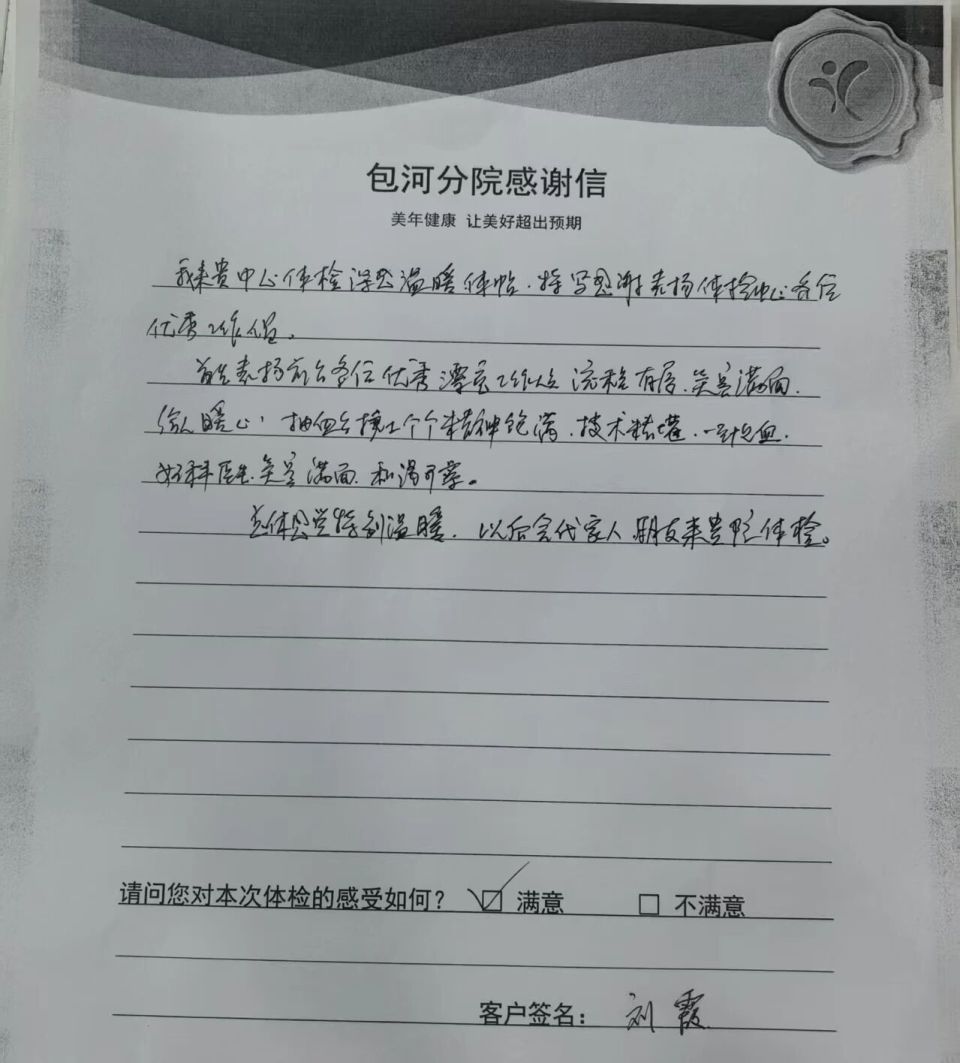 包河分院感谢信
美年健康 让美好超出预期
我来贵中心体检深感温暖体贴,特写感谢表扬体检中心各位
优秀工作人员。
首先表扬前台各位优秀漂亮工作人员 流程有序、笑容满面、
给人暖心,抽血台护士个个精神饱满、技术精堪、一针见血、
妇科医生笑容满面 和蔼可亲。
总体感觉特别温暖,以后会代家人 朋友来贵院体检。
请问您对本次体检的感受如何? ☑ 满意 □ 不满意
客户签名: 刘霞